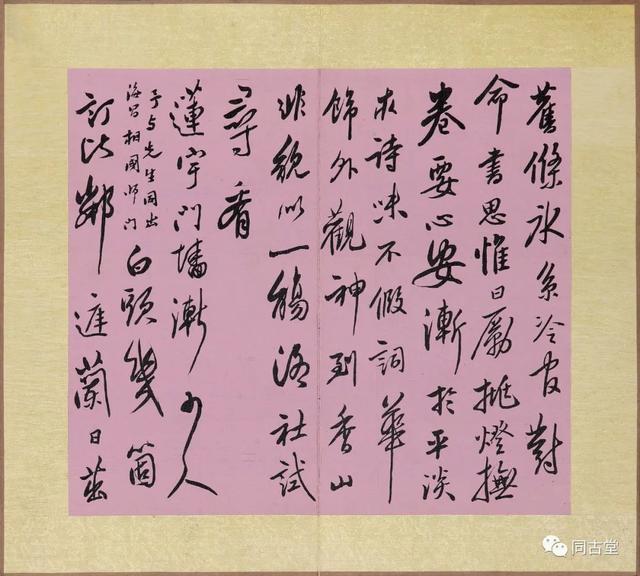 舊條冰系冷官對
命書思惟日勵挑燈撫
卷要心安漸於平淡
求詩味不假詞華
飾外觀神到香山
非貌似一觴洛社試
尋看
蓮宇門墻漸少人
予与先生同出
海昌相國師門
白頭幾箇
訂比鄰庭蘭日茁
同古堂